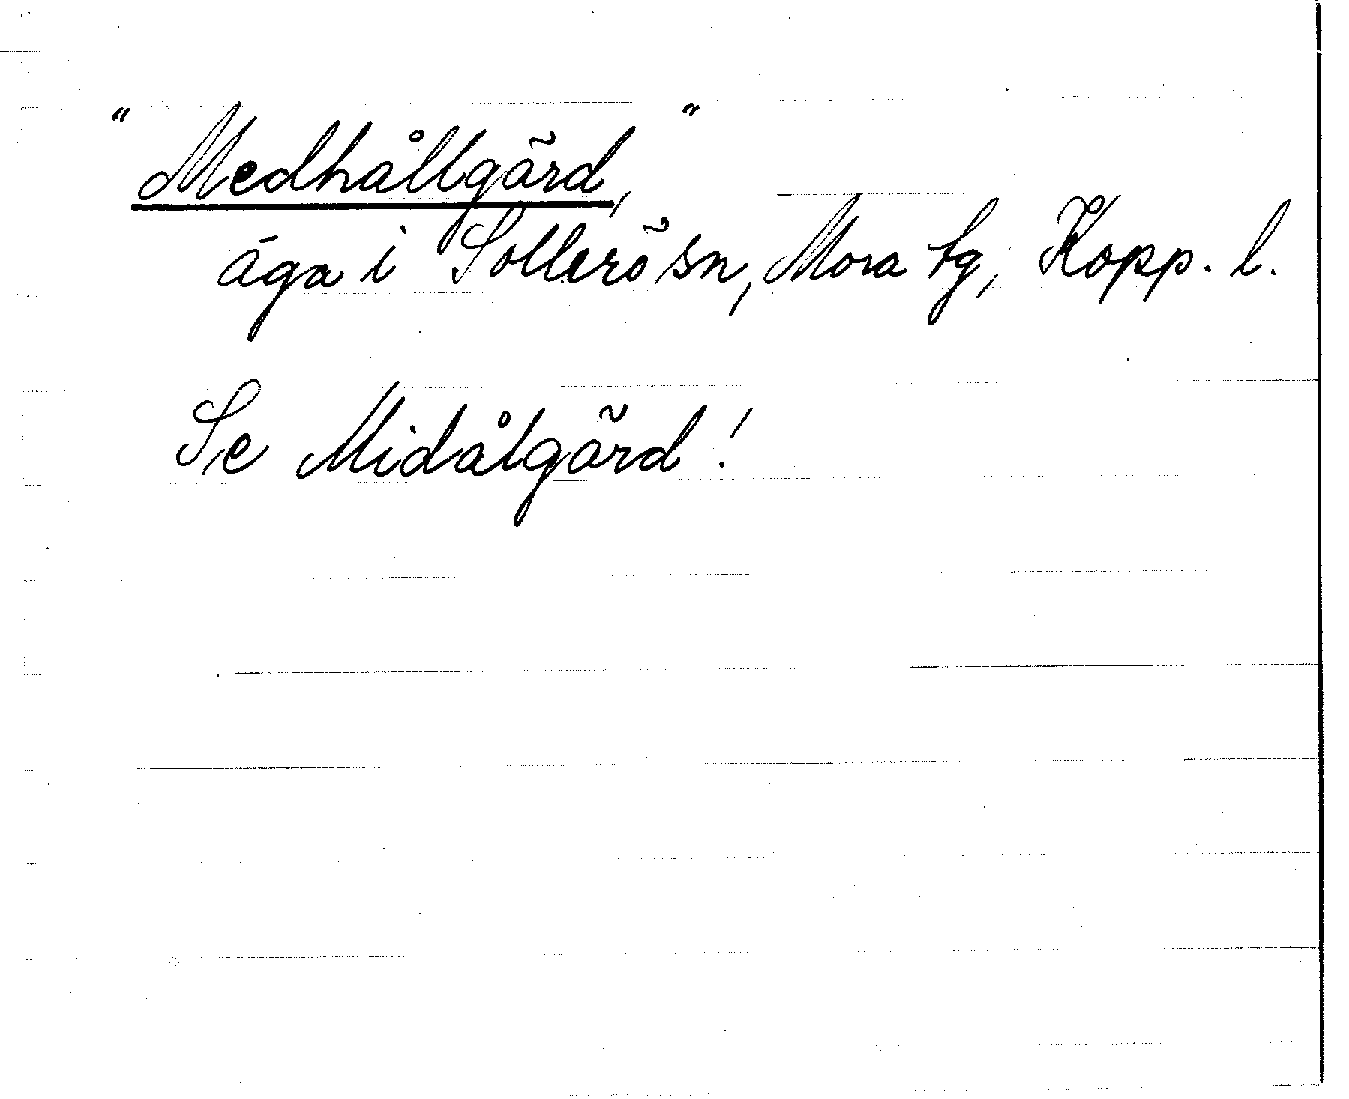 "Medhållgärd,"
äga i Sollerö sn, Mora tg, Kopp. l.
Se Midålgärd!